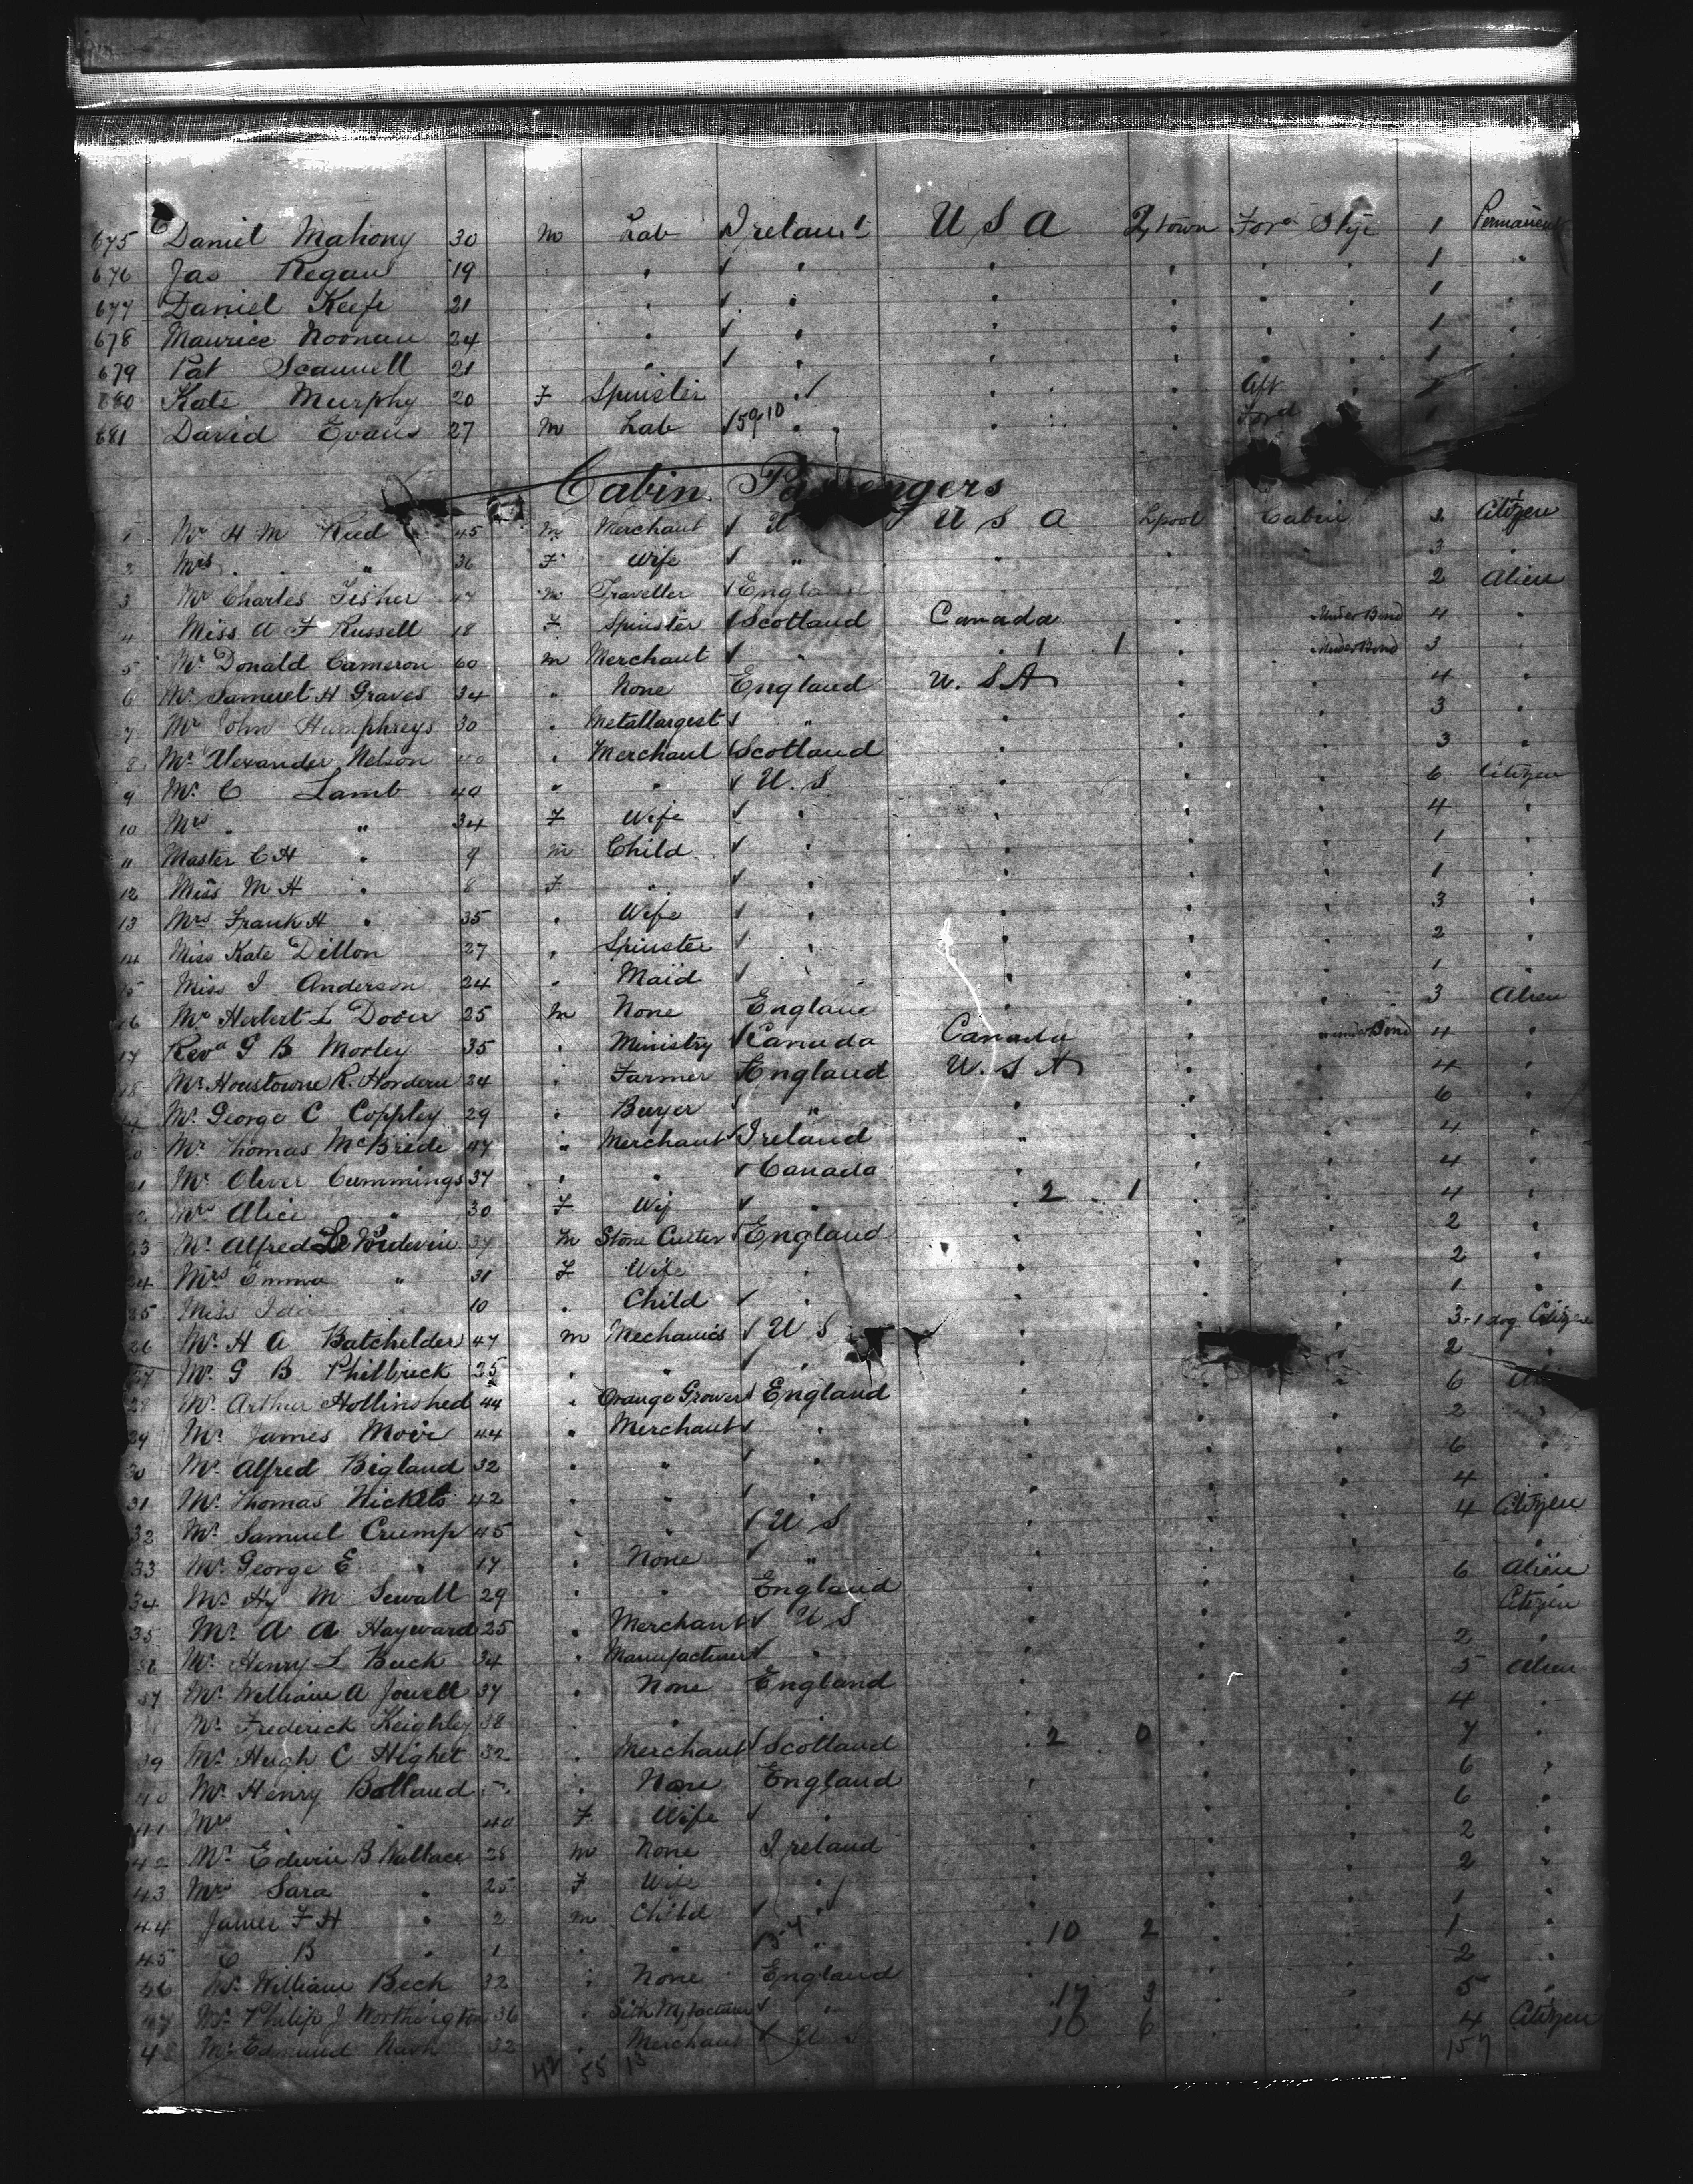 675 Daniel Mahony 30 m Lab Ireland U S A Q,town For^d Stge 1 Permanent
676 Jas Regan 19 " " " " " " 1 "
677 Daniel Keefe 21 " " " " " " 1
678 Maurice Noonan 24 " " " " " " 1 "
679 Pat Scannell 21 " " " " " " 1
680 Kate Murphy 20 F Spinster " " " Aft " 1
681 David Evans 27 m Lab " " " For^d 1
Cabin Passengers
1 Mr H M Reed 45 m Merchant U U S A Lpool Cabin 3 Citizen
2 Mrs " " 36 F Wife " " " 3 "
3 Mr Charles Fisher m Traveller England 2 Alien
4 Miss A F Russell 18 F Spinster Scotland Canada " Under Bond 4 "
5 Mr Donald Cameron 60 m Merchant " " 1 1 " Under Bond 3 "
6 Mr Samuel H Graves 34 " None England U. S A " " 4 "
7 Mr John Humphreys 30 " Metallargest " " " " 3 "
8 Mr Alexander Nelson 40 " Merchant Scotland " " " 3 "
9 Mr C Lamb 40 " " U. S " " " 6 Citizen
10 Mrs " " 34 F Wife " " " " 4 "
11 Master C H " 9 m Child " " " " 1 "
12 Miss M H " 8 F " " " " " 1 "
13 Mrs Frank H " 35 " Wife " " " " 3 "
14 Miss Kate Dillon 27 " Spinster " " " " 2 "
15 Miss I Anderson 24 " Maid " " " " 1 "
16 Mr Herbert L Dover 25 m None England " " " 3 Alien
17 Revd G B Morley 35 " Ministry Canada Canada " under Bond 4 "
18 Mr Houstowne R. Hordern 24 " Farmer England U. S A " " 4 "
19 Mr George C Coppley 29 " Buyer " " " " 6 "
20 Mr Thomas McBride 47 " Merchant Ireland " " " 4 "
21 Mr Oliver Cummings 37 " " Canada " " " 4 "
22 Mrs Alice " 30 F Wif " 2 1 " " 4 "
23 Mr Alfred 37 m Stone Cutter England " " " 2 "
24 Mrs Emma " 31 F Wife " " " " 2 "
25 Miss Ida " 10 " Child " " " " 1 "
26 Mr H A Batchelder 47 m Mechanics U S " 3-1 dog Citizen
27 Mr G B Philbrick 25 " " " " " 2 "
28 Mr Arthur Hollinshed 44 " Orange Grower England " " " 6
29 Mr James Moir 44 " Merchant " " " " 2 "
30 Mr Alfred Bigland 32 " " " " " " 6 "
31 Mr Thomas Nickels 42 " " " " " " 4 "
32 Mr Samuel Crump 45 " " U S " " " 4 Citizen
33 Mr George E " 17 " None " " " " "
34 Mr Hy M Sewall 29 " " England " " " 6 Alien
35 Mr A A Hayward 25 " Merchant U S " " " Citizen
36 Mr Henry L Buck 34 " Manufacturer " " " " 2 "
37 Mr William A Jowell 37 " None England " " " 5 Alien
Mr Frederick Keighley 38 " " " " " " 4 "
39 Mr Hugh C Highet 32 " Merchant Scotland 2 0 " " 7 "
40 Mr Henry Bolland " None England " " " 6 "
41 Mrs " " 40 F Wife " " " " 6 "
42 Mr Edwin B Wallace 28 m None Ireland " " " 2 "
43 Mrs Sara " 25 F Wife " " " " 2 "
44 James F H " 2 m Child " " " " 1 "
45 E B " 1 " " " 10 2 " " 1 "
46 Mr William Beck 32 " None England " " 2 "
47 Mr Philip J Worthington 36 " Silk Mfacturer " 17 3 " " 5 "
48 Mr Edmund Nash 32 " Merchant U 10 6 " " 4 Citizen
42 55 13 157